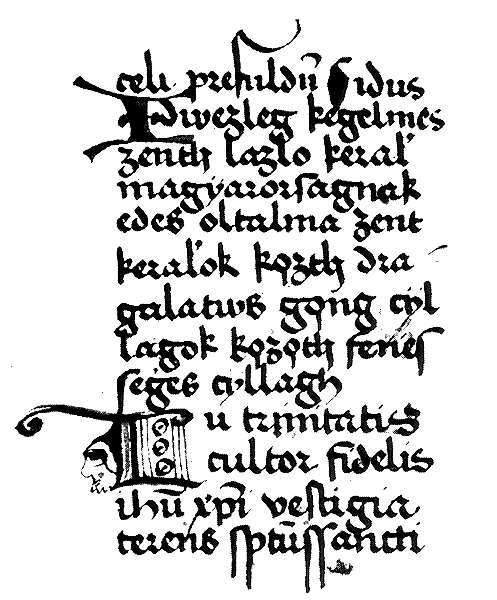 celi prefuldū Sidus
Idwezleg kegelmes
zenth lazlo keral'
magyarorsagnak
edes oltalma zent
keral'ok kozth dra
galatws gong cyl
lagok kozoth fenes
seges cyllagh
Tu trinitatis
cultor fidelis
ihū xpī vestigia
terens sptūssancti